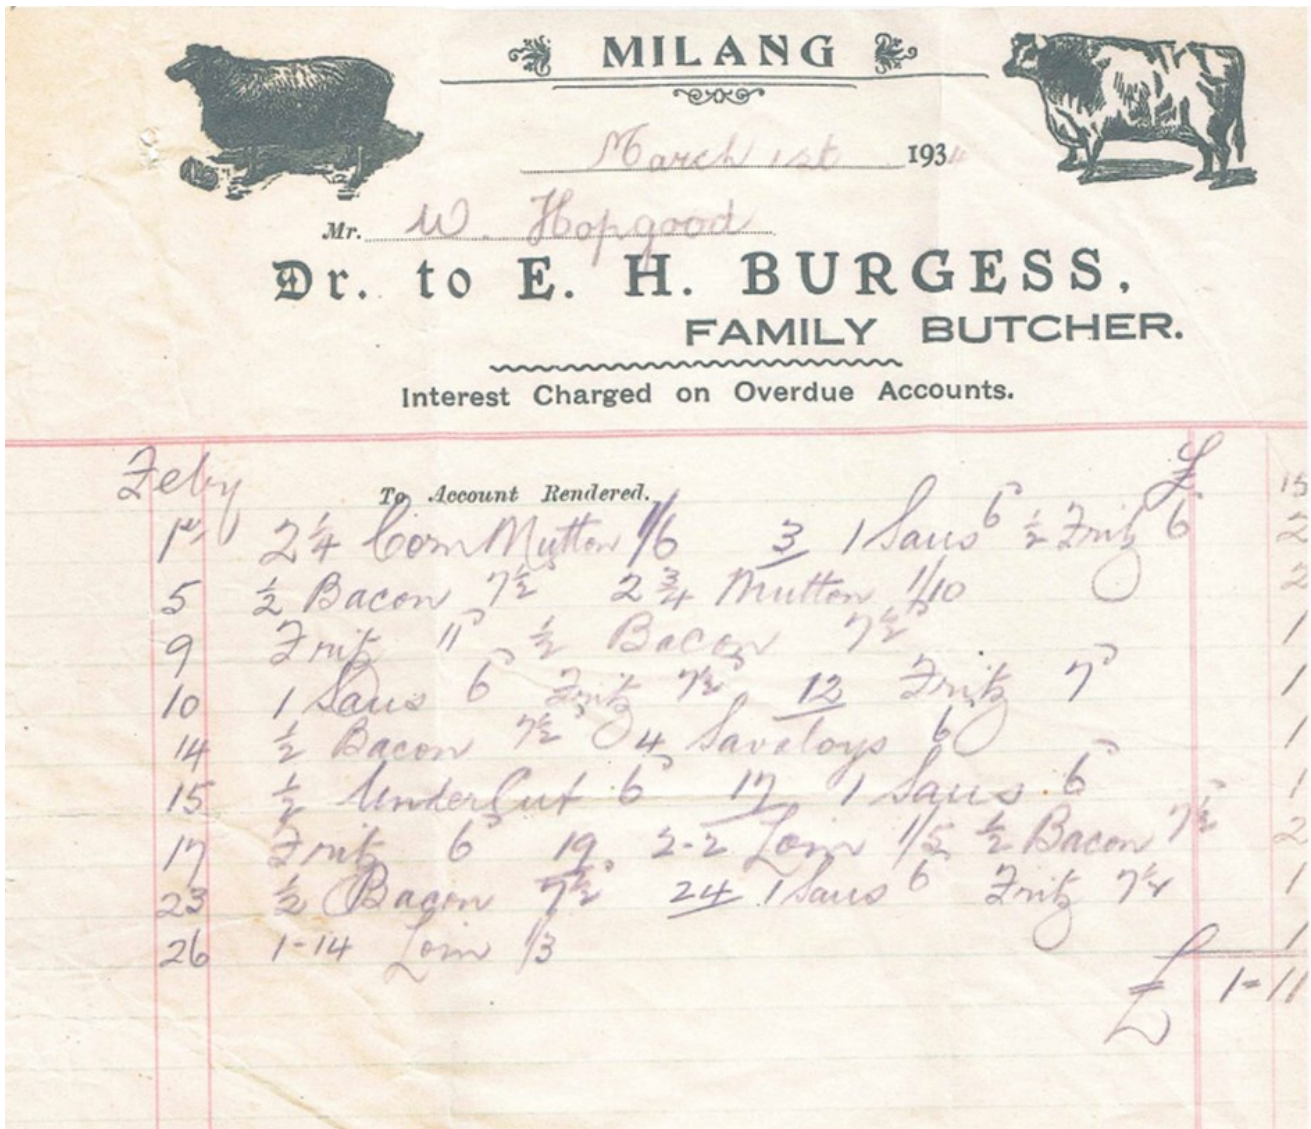 MILANG
March 1st 1934
Mr. W. Hopgood
Dr. to E. H. BURGESS,
FAMILY BUTCHER.
Interest Charged on Overdue Accounts.
Feby To Account Rendered. £ 15
1st 2¼ Corn Mutton 1/6 3 1 Saus 6ᴰ ½ Fritz 6 2
5 ½ Bacon 7½ 2¾ Mutton 1/10 2
9 Fritz 11ᴰ ½ Bacon 7½ᴰ 1
10 1 Saus 6ᴰ Fritz 7½ᴰ 12 Fritz 7ᴰ 1
14 ½ Bacon 7½ᴰ 4 Savaloys 6ᴰ 1
15 ½ UnderCut 6ᴰ 17 1 Saus 6ᴰ 1
17 Fritz 6ᴰ 19 2-2 Loin 1/5 ½ Bacon 7½ᴰ 2
23 ½ Bacon 7½ᴰ 24 1 Saus 6ᴰ Fritz 7½ 1
26 1-14 Loin 1/3 1
£ 1-11